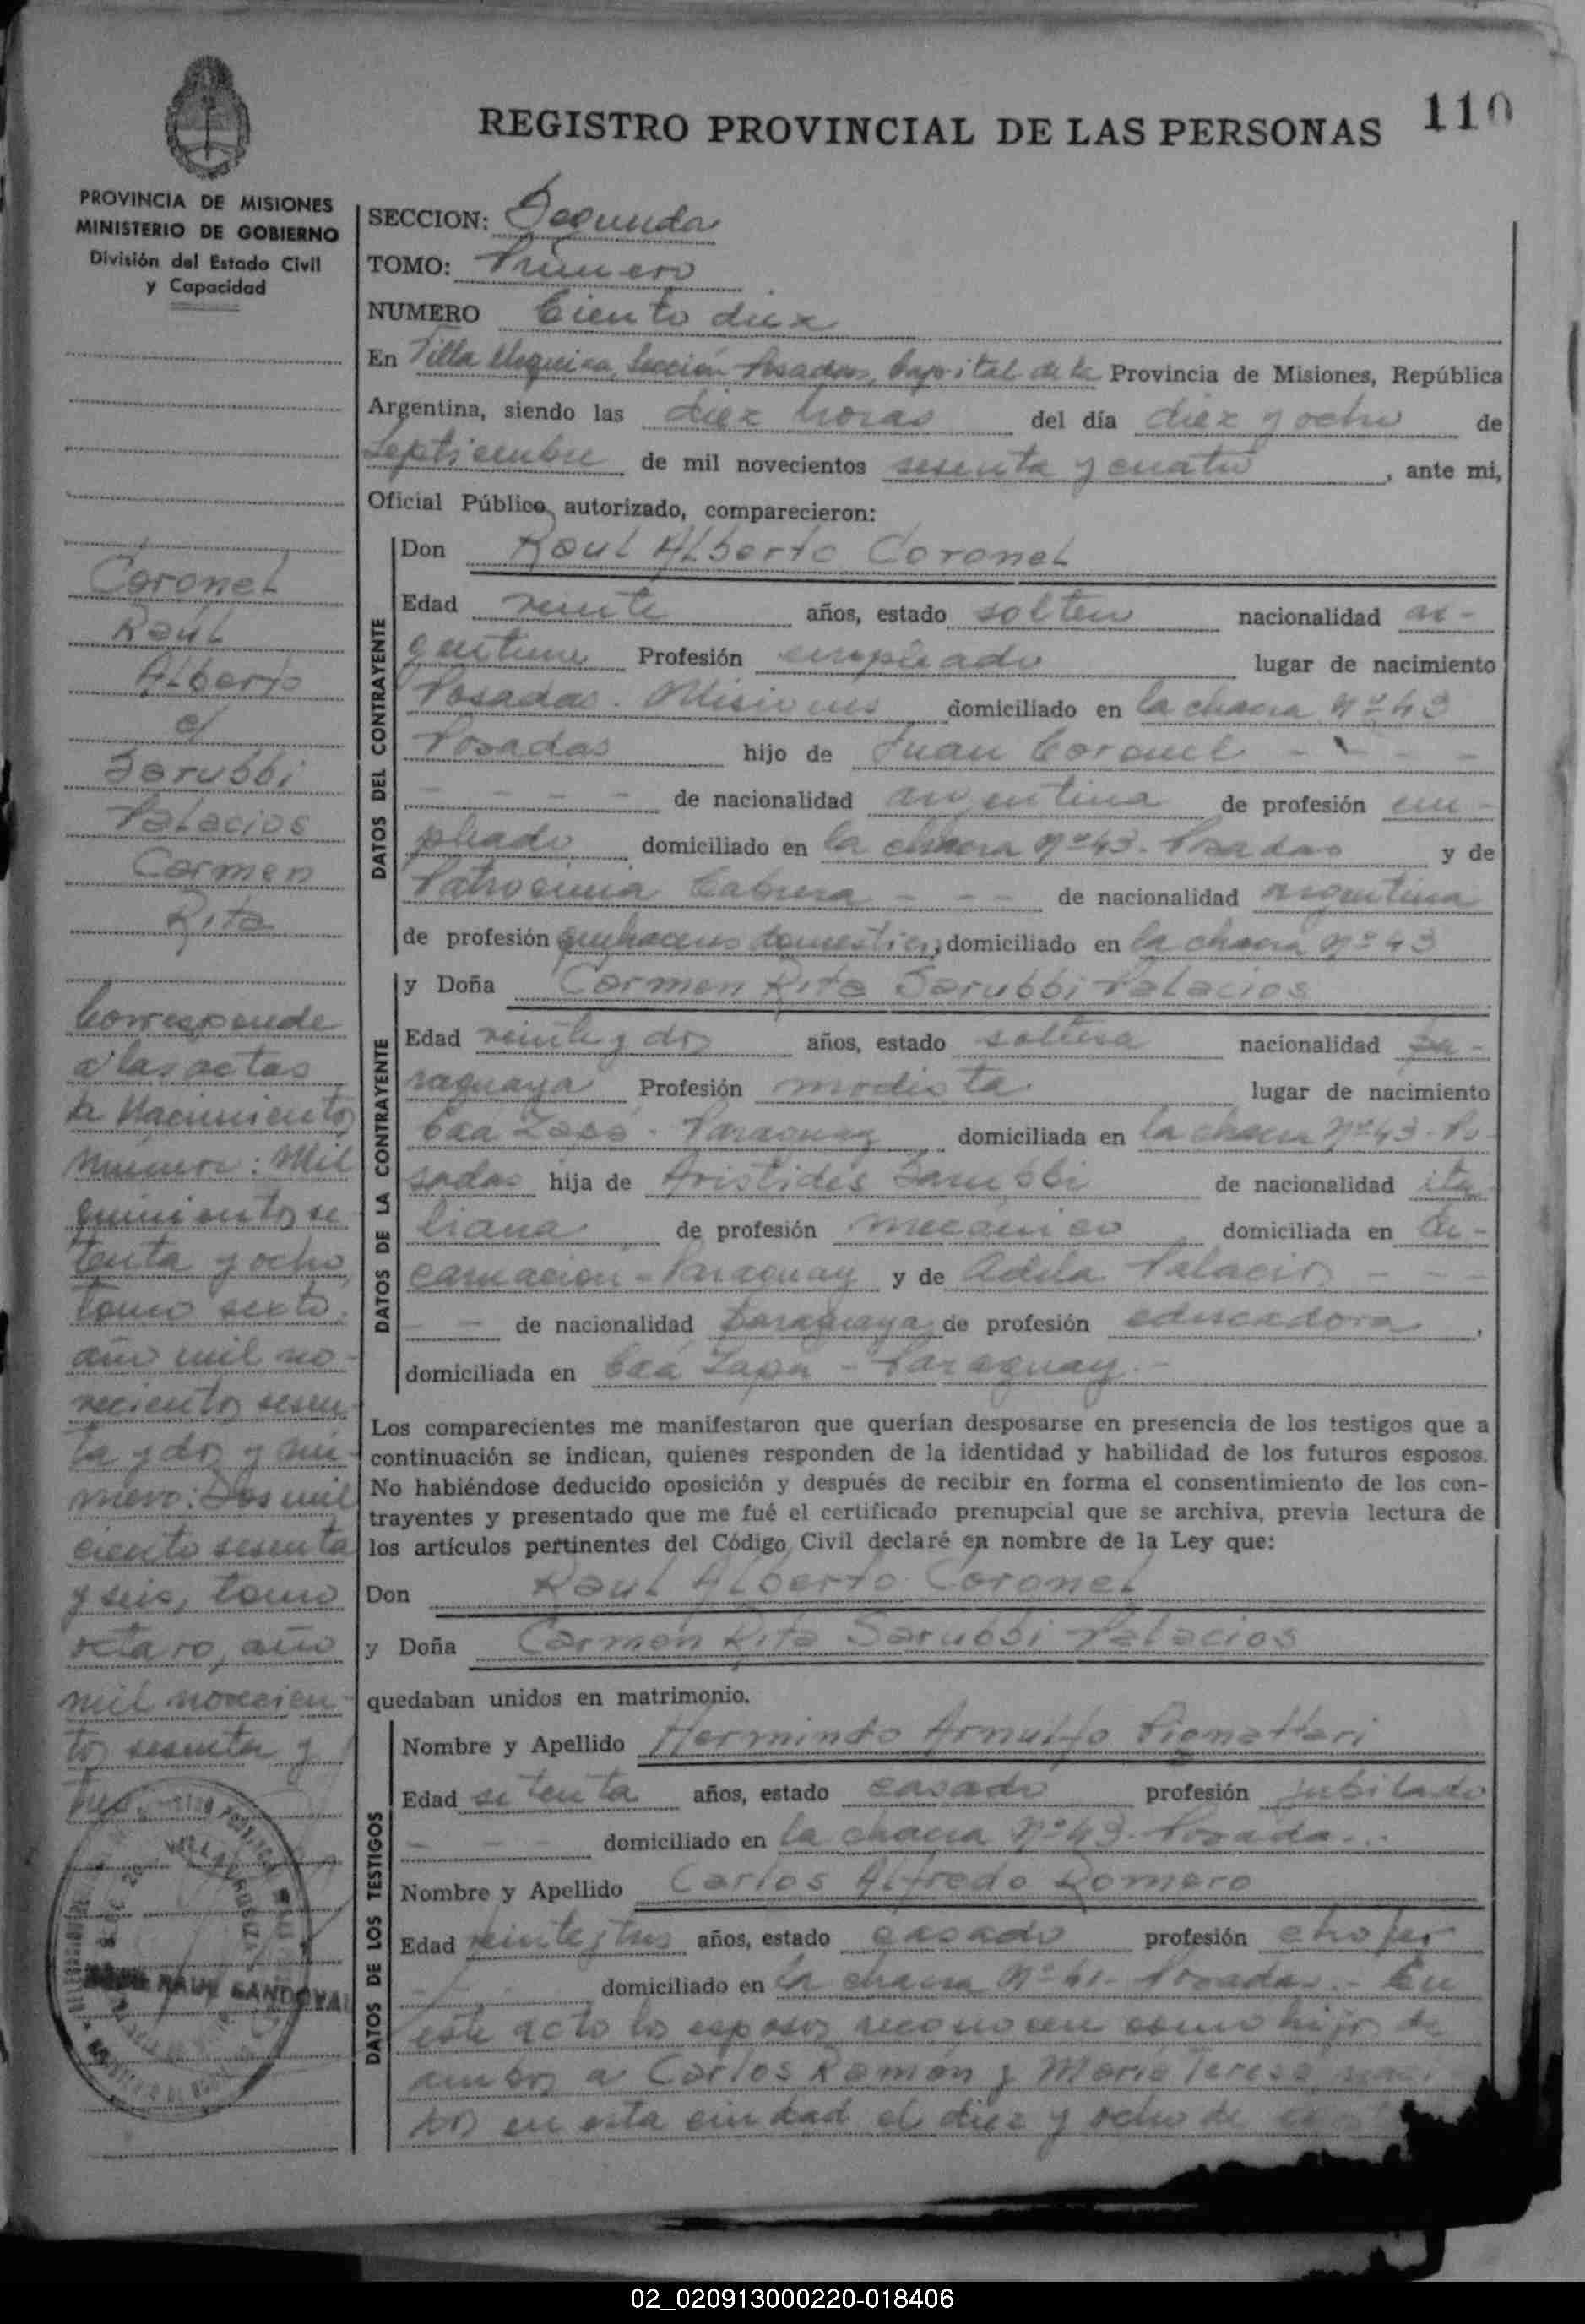 REGISTRO PROVINCIAL DE LAS PERSONAS
110
PROVINCIA DE MISIONES
MINISTERIO DE GOBIERNO
División del Estado Civil
y Capacidad
Coronel
Raúl
Alberto
c/
Sarubbi
Palacios
Carmen
Rita
Corresponde
a las actas
de Nacimientos
Número: Mil
quinientos se
tenta y ocho,
tomo sexto.
año mil no-
vecientos sesen-
ta y dos y nú-
mero: Dos mil
ciento sesenta
y seis, tomo
octavo, año
mil novecien-
tos sesenta y
tres.
RAUL SANDOVAL
SECCION: Segunda
TOMO: Primero
NUMERO Ciento diez
En Villa Urquiza, Sección Posadas, Capital de la Provincia de Misiones, República
Argentina, siendo las diez horas del día diez y ocho de
Septiembre de mil novecientos sesenta y cuatro, ante mi,
Oficial Público, autorizado, comparecieron:
DATOS DEL CONTRAYENTE
Don Raul Alberto Coronel
Edad veinte años, estado soltero nacionalidad ar-
gentina Profesión empleado lugar de nacimiento
Posadas - Misiones domiciliado en la chacra Nº 43
Posadas hijo de Juan Coronel - - - -
- - - - de nacionalidad argentina de profesión em-
pleado domiciliado en la chacra Nº 43 - Posadas y de
Patrocinia Cabrera - - - de nacionalidad argentina
de profesión quehaceres domésticos, domiciliado en la chacra Nº 43
DATOS DE LA CONTRAYENTE
y Doña Carmen Rita Sarubbi Palacios
Edad veinte y dos años, estado soltera nacionalidad pa-
raguaya Profesión modista lugar de nacimiento
Caá Zapá - Paraguay domiciliada en la chacra Nº 43 - Po-
sadas hija de Aristides Sarubbi de nacionalidad ita
liana de profesión mecánico domiciliada en En-
carnación - Paraguay y de Adela Palacios - - -
- - de nacionalidad paraguaya de profesión educadora,
domiciliada en Caá Zapá - Paraguay.-
Los comparecientes me manifestaron que querían desposarse en presencia de los testigos que a
continuación se indican, quienes responden de la identidad y habilidad de los futuros esposos.
No habiéndose deducido oposición y después de recibir en forma el consentimiento de los con-
trayentes y presentado que me fué el certificado prenupcial que se archiva, previa lectura de
los artículos pertinentes del Código Civil declaré en nombre de la Ley que:
Don Raul Alberto Coronel
y Doña Carmen Rita Sarubbi Palacios
quedaban unidos en matrimonio.
DATOS DE LOS TESTIGOS
Nombre y Apellido Hermindo Arnulfo Pignattari
Edad setenta años, estado casado profesión jubilado
- - - domiciliado en la chacra Nº 49 - Posadas.-
Nombre y Apellido Carlos Alfredo Romero
Edad veinte y tres años, estado casado profesión chofer
domiciliado en la chacra Nº 41 - Posadas.- En
este acto los esposos reconocen como hijos de
ambos a Carlos Ramón y María Teresa, naci
dos en esta ciudad el diez y ocho de
02_020913000220-018406